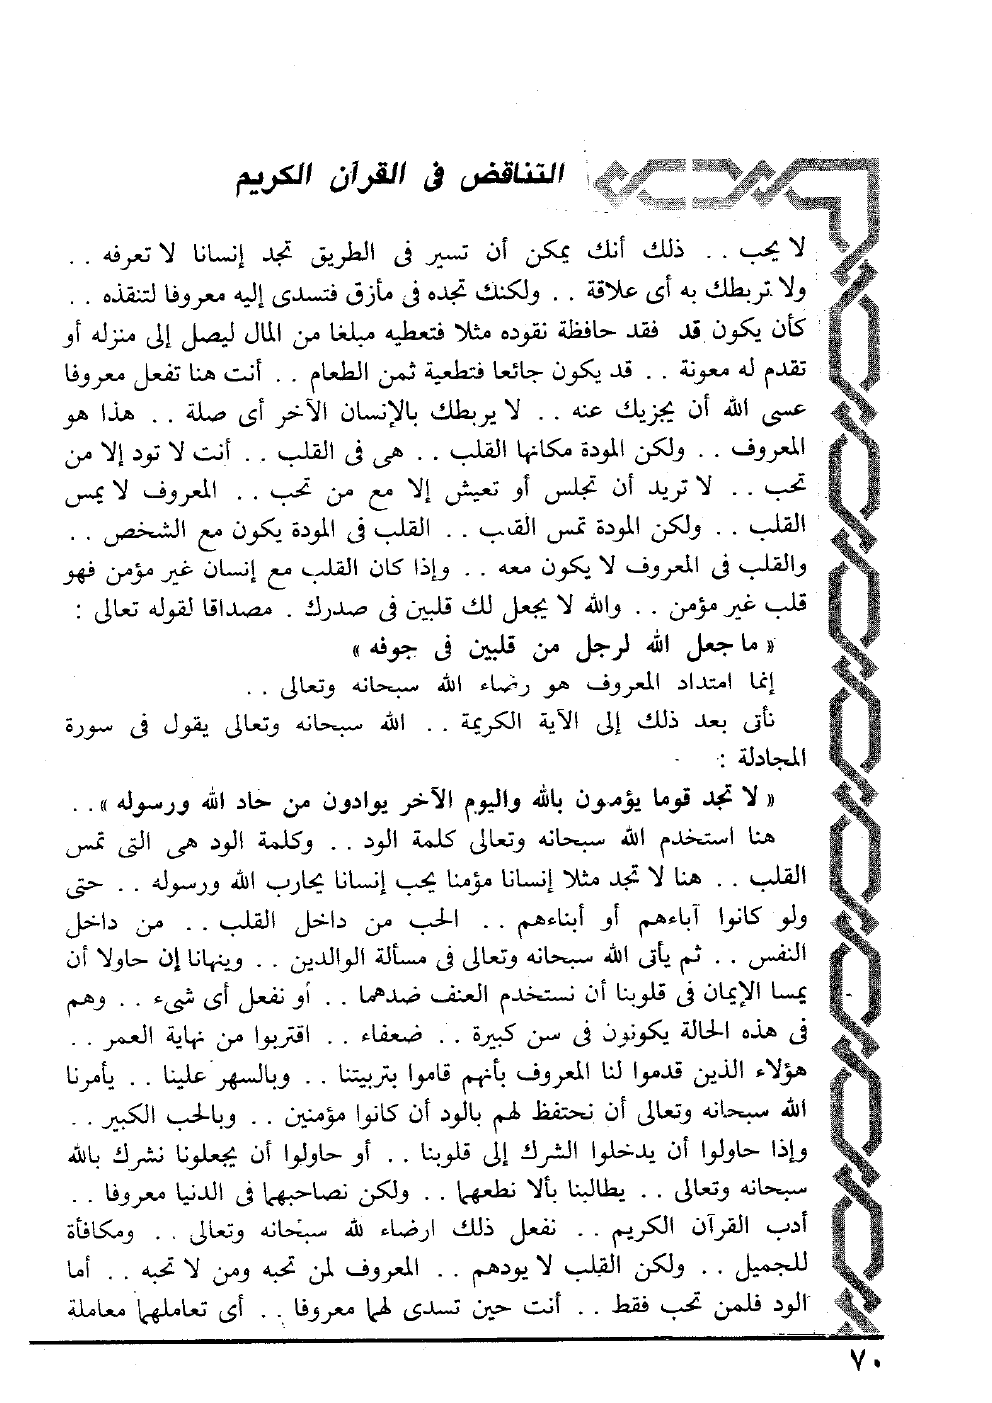 التناقض فى القرآن الكريم
لا يحب .. ذلك أنك يمكن أن تسير فى الطريق تجد إنسانا لا تعرفه ..
ولا تربطك به أى علاقة .. ولكنك تجده فى مأزق فتسدى إليه معروفا لتنقذه ..
كأن يكون قد فقد حافظة نقوده مثلا فتعطيه مبلغا من المال ليصل إلى منزله أو
تقدم له معونة .. قد يكون جائعا فتطعية ثمن الطعام .. أنت هنا تفعل معروفا
عسى الله أن يجزيك عنه .. لا يربطك بالإنسان الآخر أى صلة .. هذا هو
المعروف .. ولكن المودة مكانها القلب .. هى فى القلب .. أنت لا تود إلا من
تحب .. لا تريد أن تجلس أو تعيش إلا مع من تحب .. المعروف لا يمس
القلب .. ولكن المودة تمس القلب .. القلب فى المودة يكون مع الشخص ..
والقلب فى المعروف لا يكون معه .. وإذا كان القلب مع إنسان غير مؤمن فهو
قلب غير مؤمن .. والله لا يجعل لك قلبين فى صدرك . مصداقا لقوله تعالى :
« ما جعل الله لرجل من قلبين فى جوفه »
إنما امتداد المعروف هو رضاء الله سبحانه وتعالى ..
نأتى بعد ذلك إلى الآية الكريمة .. الله سبحانه وتعالى يقول فى سورة
المجادلة :
« لا تجد قوما يؤمنون بالله واليوم الآخر يوادون من حاد الله ورسوله » ..
هنا استخدم الله سبحانه وتعالى كلمة الود .. وكلمة الود هى التى تمس
القلب .. هنا لا تجد مثلا إنسانا مؤمنا يحب إنسانا يحارب الله ورسوله .. حتى
ولو كانوا آباءهم أو أبناءهم .. الحب من داخل القلب .. من داخل
النفس .. ثم يأتى الله سبحانه وتعالى فى مسألة الوالدين .. وينهانا إن حاولا أن
يمسا الإيمان فى قلوبنا أن نستخدم العنف ضدهما .. أو نفعل أى شىء .. وهم
فى هذه الحالة يكونون فى سن كبيرة .. ضعفاء .. اقتربوا من نهاية العمر ..
هؤلاء الذين قدموا لنا المعروف بأنهم قاموا بتربيتنا .. وبالسهر علينا .. يأمرنا
الله سبحانه وتعالى أن نحتفظ لهم بالود أن كانوا مؤمنين .. وبالحب الكبير ..
وإذا حاولوا أن يدخلوا الشرك إلى قلوبنا .. أو حاولوا أن يجعلونا نشرك بالله
سبحانه وتعالى .. يطالبنا بألا نطعهما .. ولكن نصاحبهما فى الدنيا معروفا ..
أدب القرآن الكريم .. نفعل ذلك ارضاء لله سبحانه وتعالى .. ومكافأة
للجميل .. ولكن القلب لا يودهم .. المعروف لمن تحبه ومن لا تحبه .. أما
الود فلمن تحب فقط .. أنت حين تسدى لهما معروفا .. أى تعاملهما معاملة
٧٠